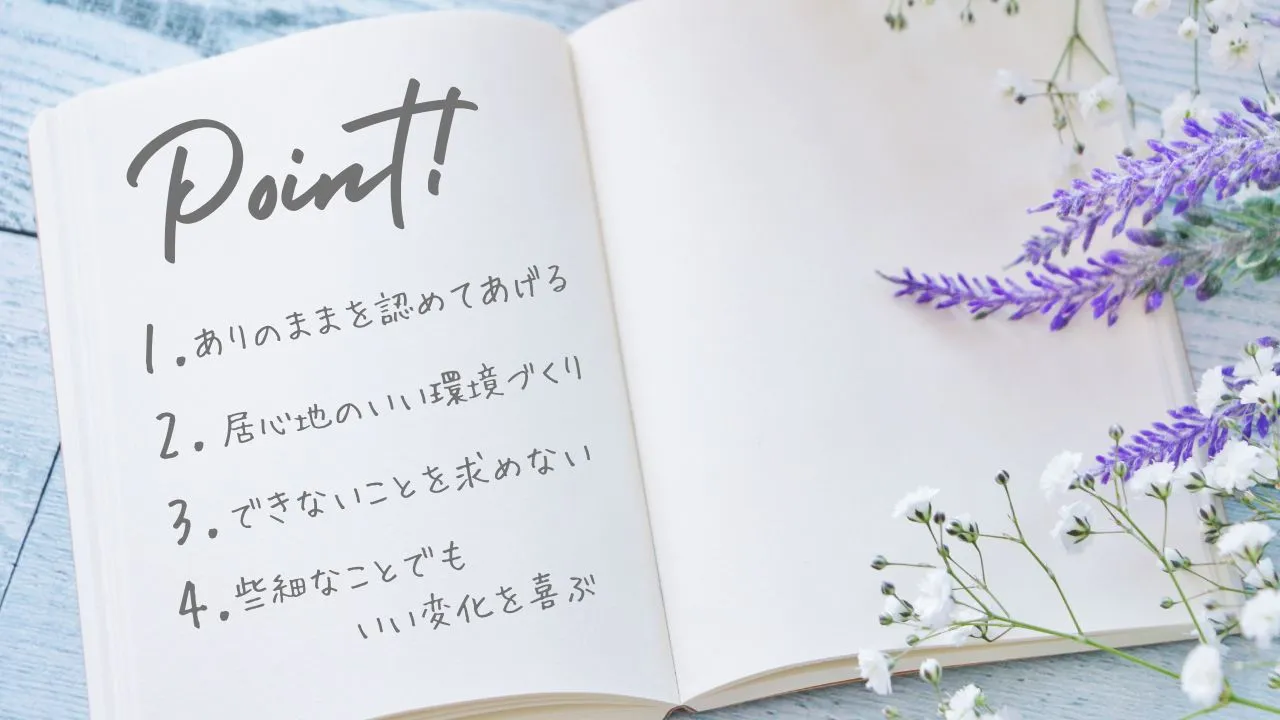 Point!
1. ありのままを認めてあげる
2. 居心地のいい環境づくり
3. できないことを求めない
4. 些細なことでも
いい変化を喜ぶ